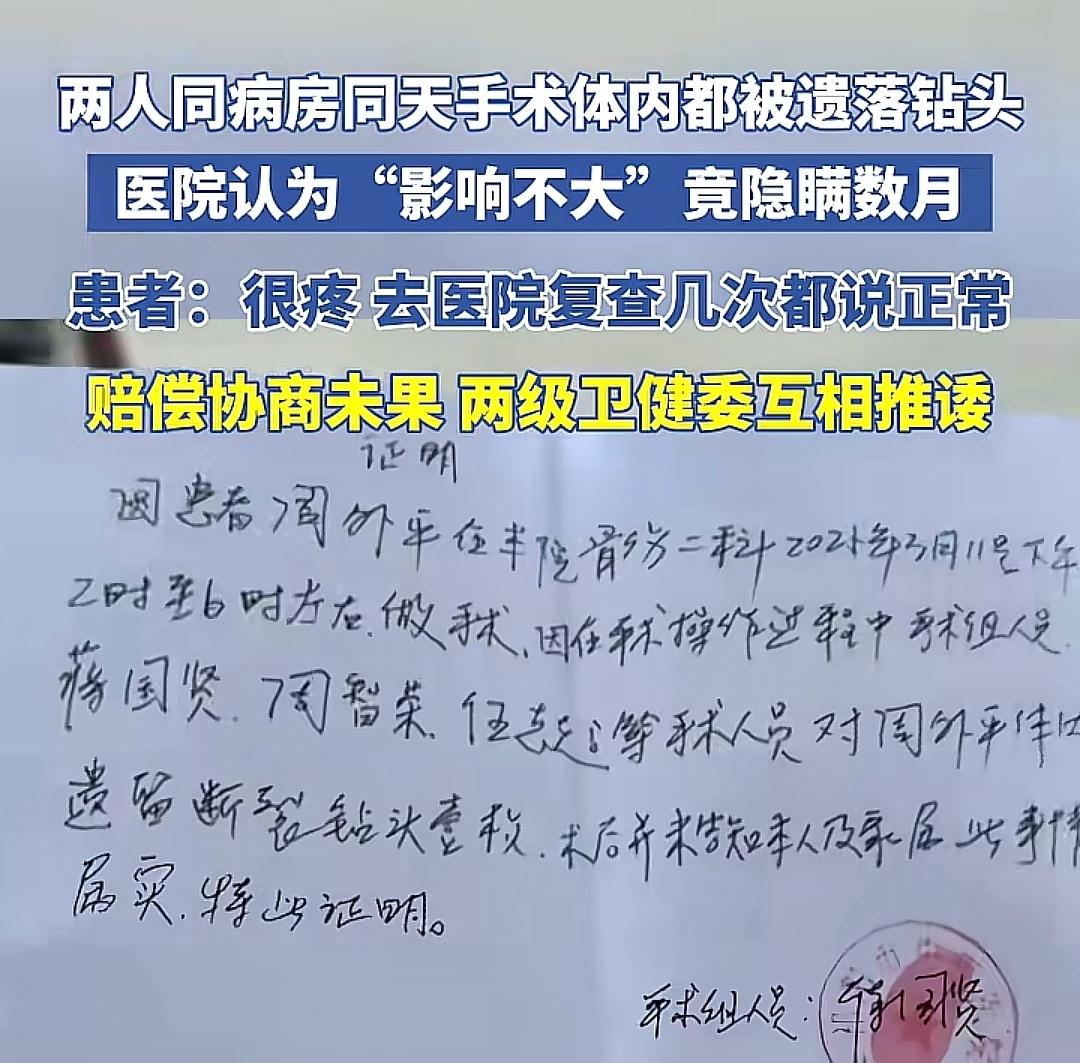 两人同病房同天手术体内都被遗落钻头
医院认为“影响不大”竟隐瞒数月
患者：很疼 去医院复查几次都说正常
赔偿协商未果 两级卫健委互相推诿
证明
因患者周外平在半院骨伤二科2025年3月11号下午
2时至6时左右.做手术,因在手术操作过程中手术组人员.
蒋国贤.周智荣.任 等手术人员对周外平体内
遗留断裂钻头壹枚.术后并未告知本人及家属此事情
属实.特此证明。
手术组人员：蒋国贤